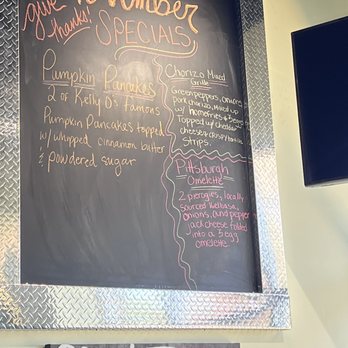 give
thanks!
November
SPECIALS
Pumpkin Pancakes
2 of Kelly O's Famous
Pumpkin Pancakes topped
w/ whipped cinnamon butter
& powdered sugar
Chorizo Mixed
Grille
Green peppers, onions,
pork chorizo, mixed up
w/ homefries & eggs
Topped w/ cheddar
cheese & crispy tortilla
strips.
Pittsburgh
Omelette
2 pierogies, locally
sourced Kielbasa,
onions, and pepper
jack cheese folded
into a 3 egg
omelette